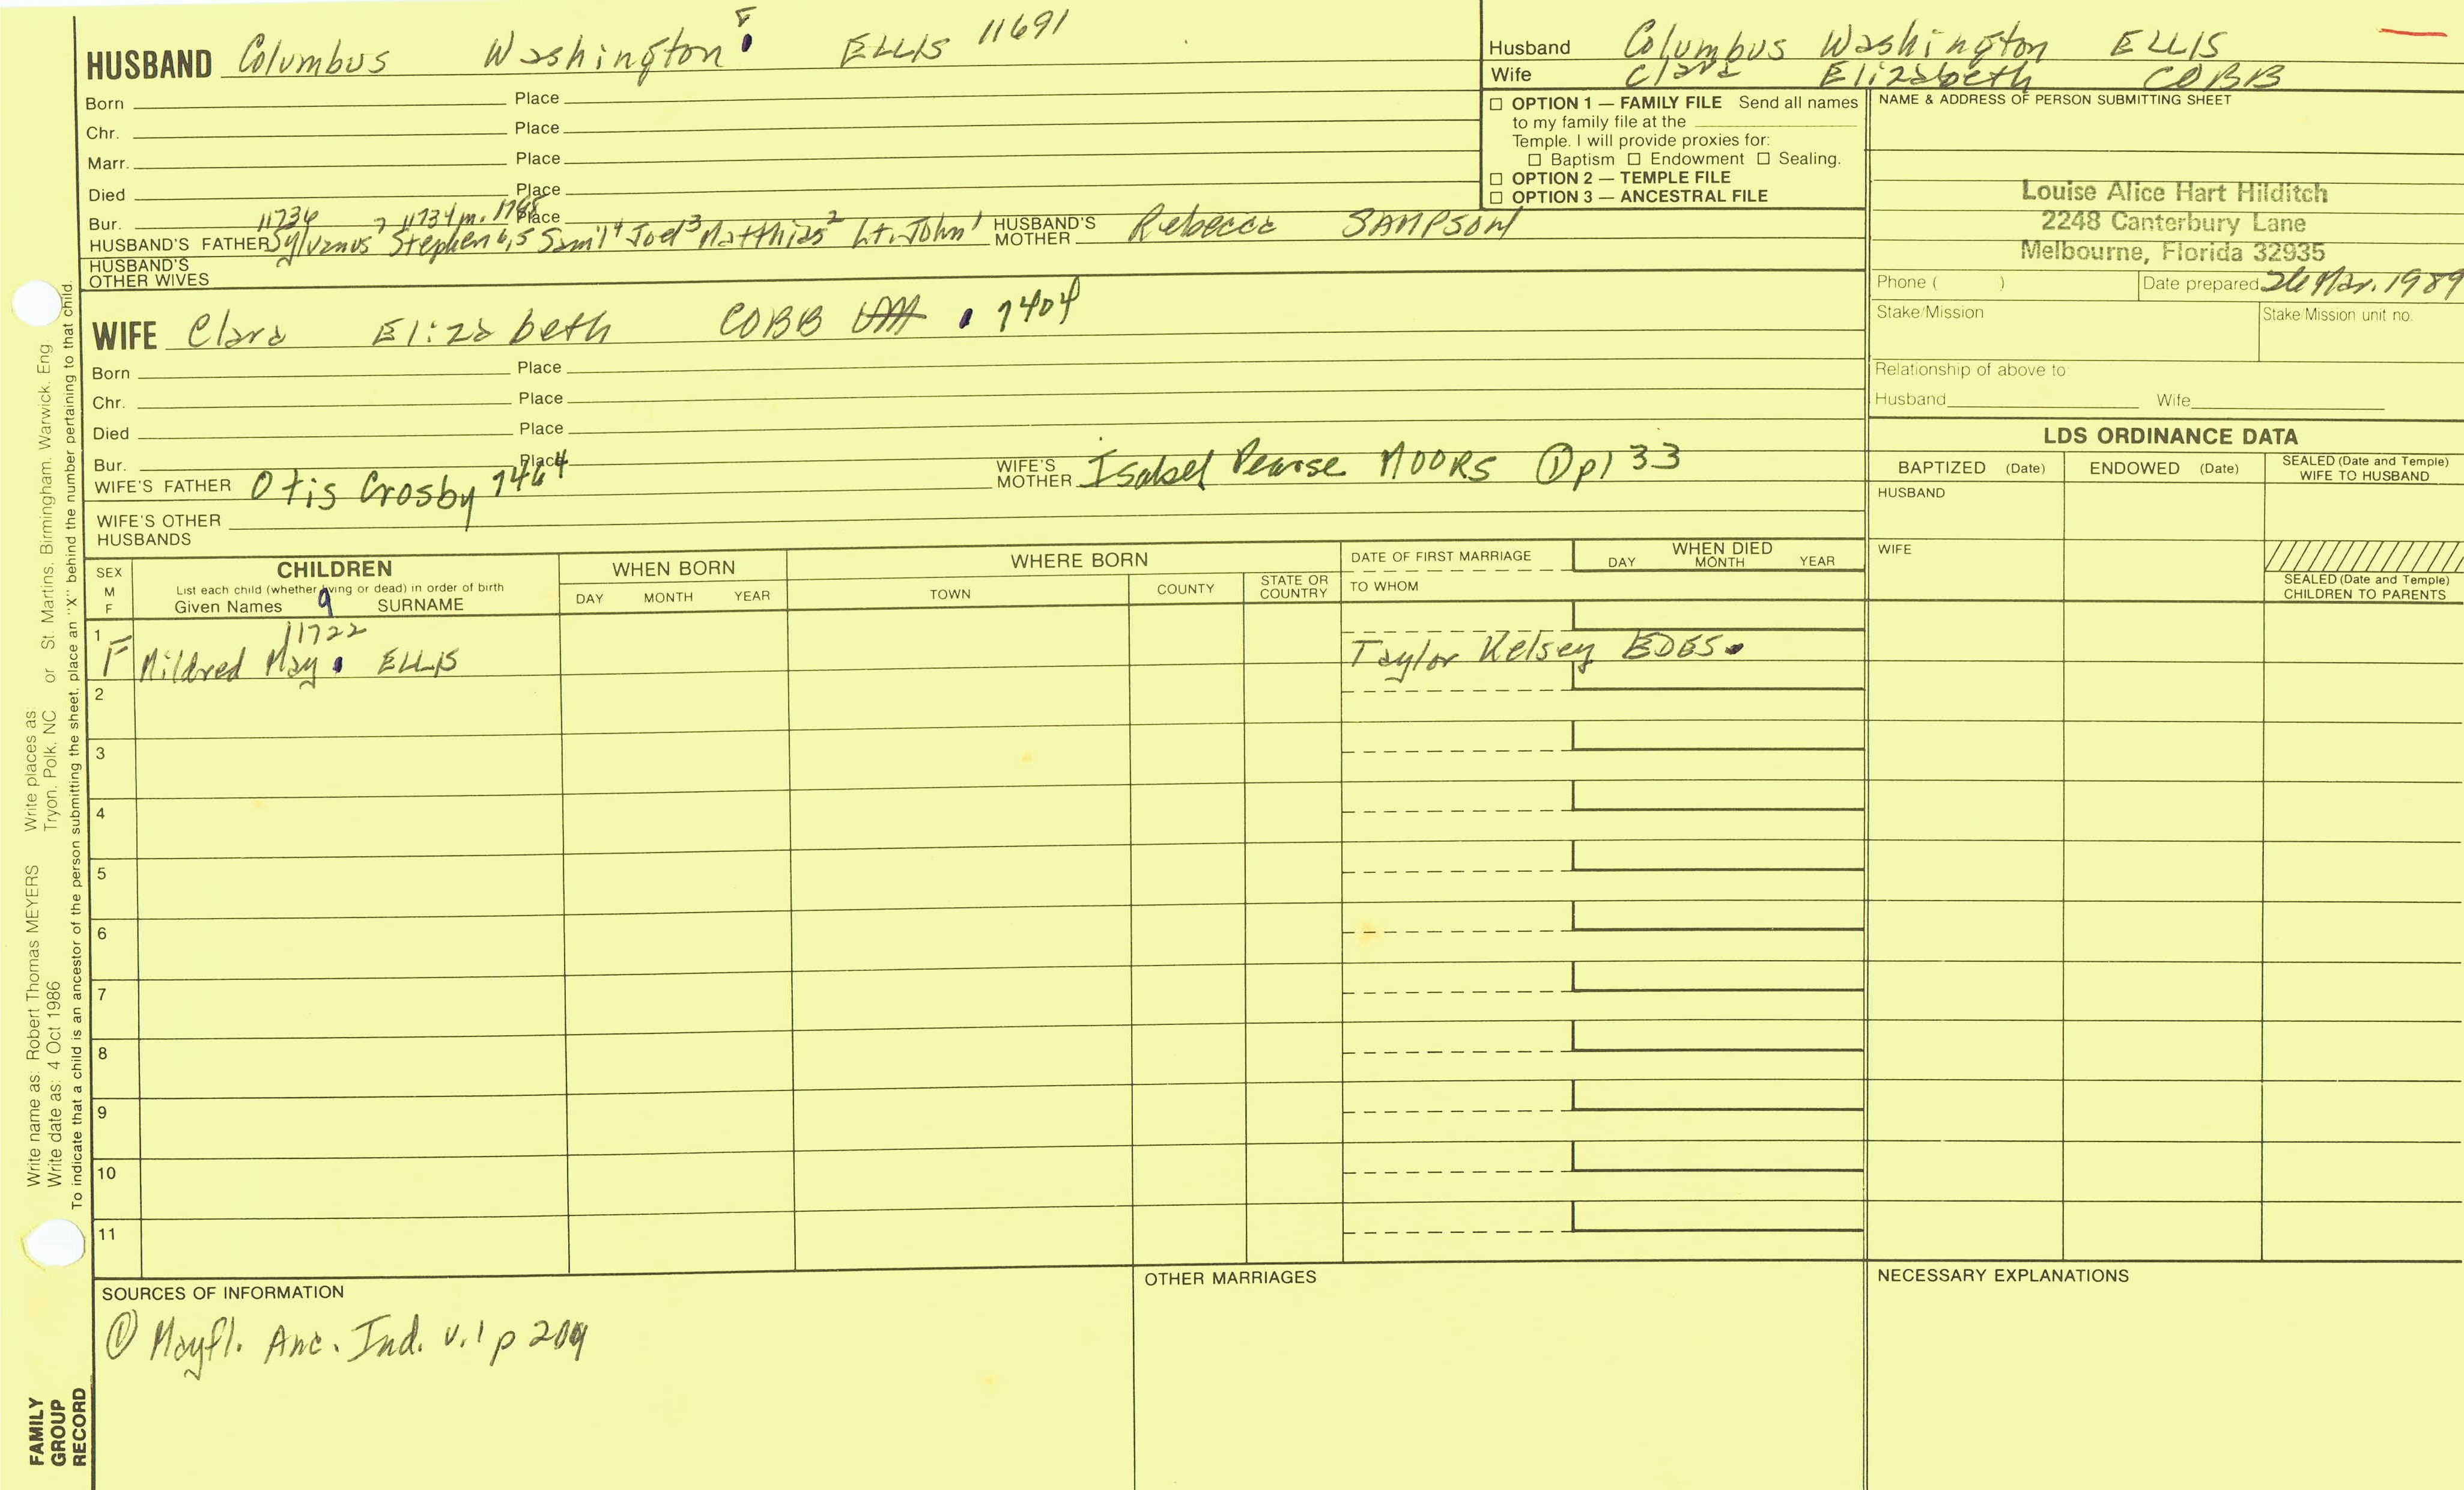 HUSBAND Columbus Washington 8 ELLIS 11691
Born Place
Chr. Place
Marr. Place
Died Place
Bur. Place
11736 7 11734 m. 1768
HUSBAND'S FATHER Sylvanus Stephen 6,5 Sam'l 4 Joel 3 Matthias 2 Lt. John 1 HUSBAND'S MOTHER Rebecca SAMPSON
HUSBAND'S OTHER WIVES
WIFE Clara Elizabeth COBB 7404
Born Place
Chr. Place
Died Place
Bur. Place
WIFE'S FATHER Otis Crosby 7464 WIFE'S MOTHER Isabel Pearse MOORS ① p133
WIFE'S OTHER HUSBANDS
Husband Columbus Washington ELLIS
Wife Clara Elizabeth COBB
☐ OPTION 1 — FAMILY FILE Send all names
to my family file at the
Temple. I will provide proxies for:
☐ Baptism ☐ Endowment ☐ Sealing.
☐ OPTION 2 — TEMPLE FILE
☐ OPTION 3 — ANCESTRAL FILE
NAME & ADDRESS OF PERSON SUBMITTING SHEET
Louise Alice Hart Hilditch
2248 Canterbury Lane
Melbourne, Florida 32935
Phone ( ) Date prepared 26 Mar. 1989
Stake/Mission Stake/Mission unit no.
Relationship of above to
Husband Wife
LDS ORDINANCE DATA
BAPTIZED (Date) ENDOWED (Date) SEALED (Date and Temple) WIFE TO HUSBAND
HUSBAND
WIFE
SEALED (Date and Temple) CHILDREN TO PARENTS
SEX M F
CHILDREN
List each child (whether living or dead) in order of birth
Given Names 9 SURNAME
WHEN BORN
DAY MONTH YEAR
WHERE BORN
TOWN COUNTY STATE OR COUNTRY
DATE OF FIRST MARRIAGE
TO WHOM
WHEN DIED
DAY MONTH YEAR
11722
1 F Mildred May ELLIS Taylor Kelsey EDES
2
3
4
5
6
7
8
9
10
11
SOURCES OF INFORMATION
① Mayfl. Anc. Ind. v.1 p 209
OTHER MARRIAGES
NECESSARY EXPLANATIONS
Write name as: Robert Thomas MEYERS Write places as:
Write date as: 4 Oct 1986 Tryon, Polk, NC or St. Martins, Birmingham, Warwick, Eng.
To indicate that a child is an ancestor of the person submitting the sheet, place an "X" behind the number pertaining to that child.
FAMILY
GROUP
RECORD